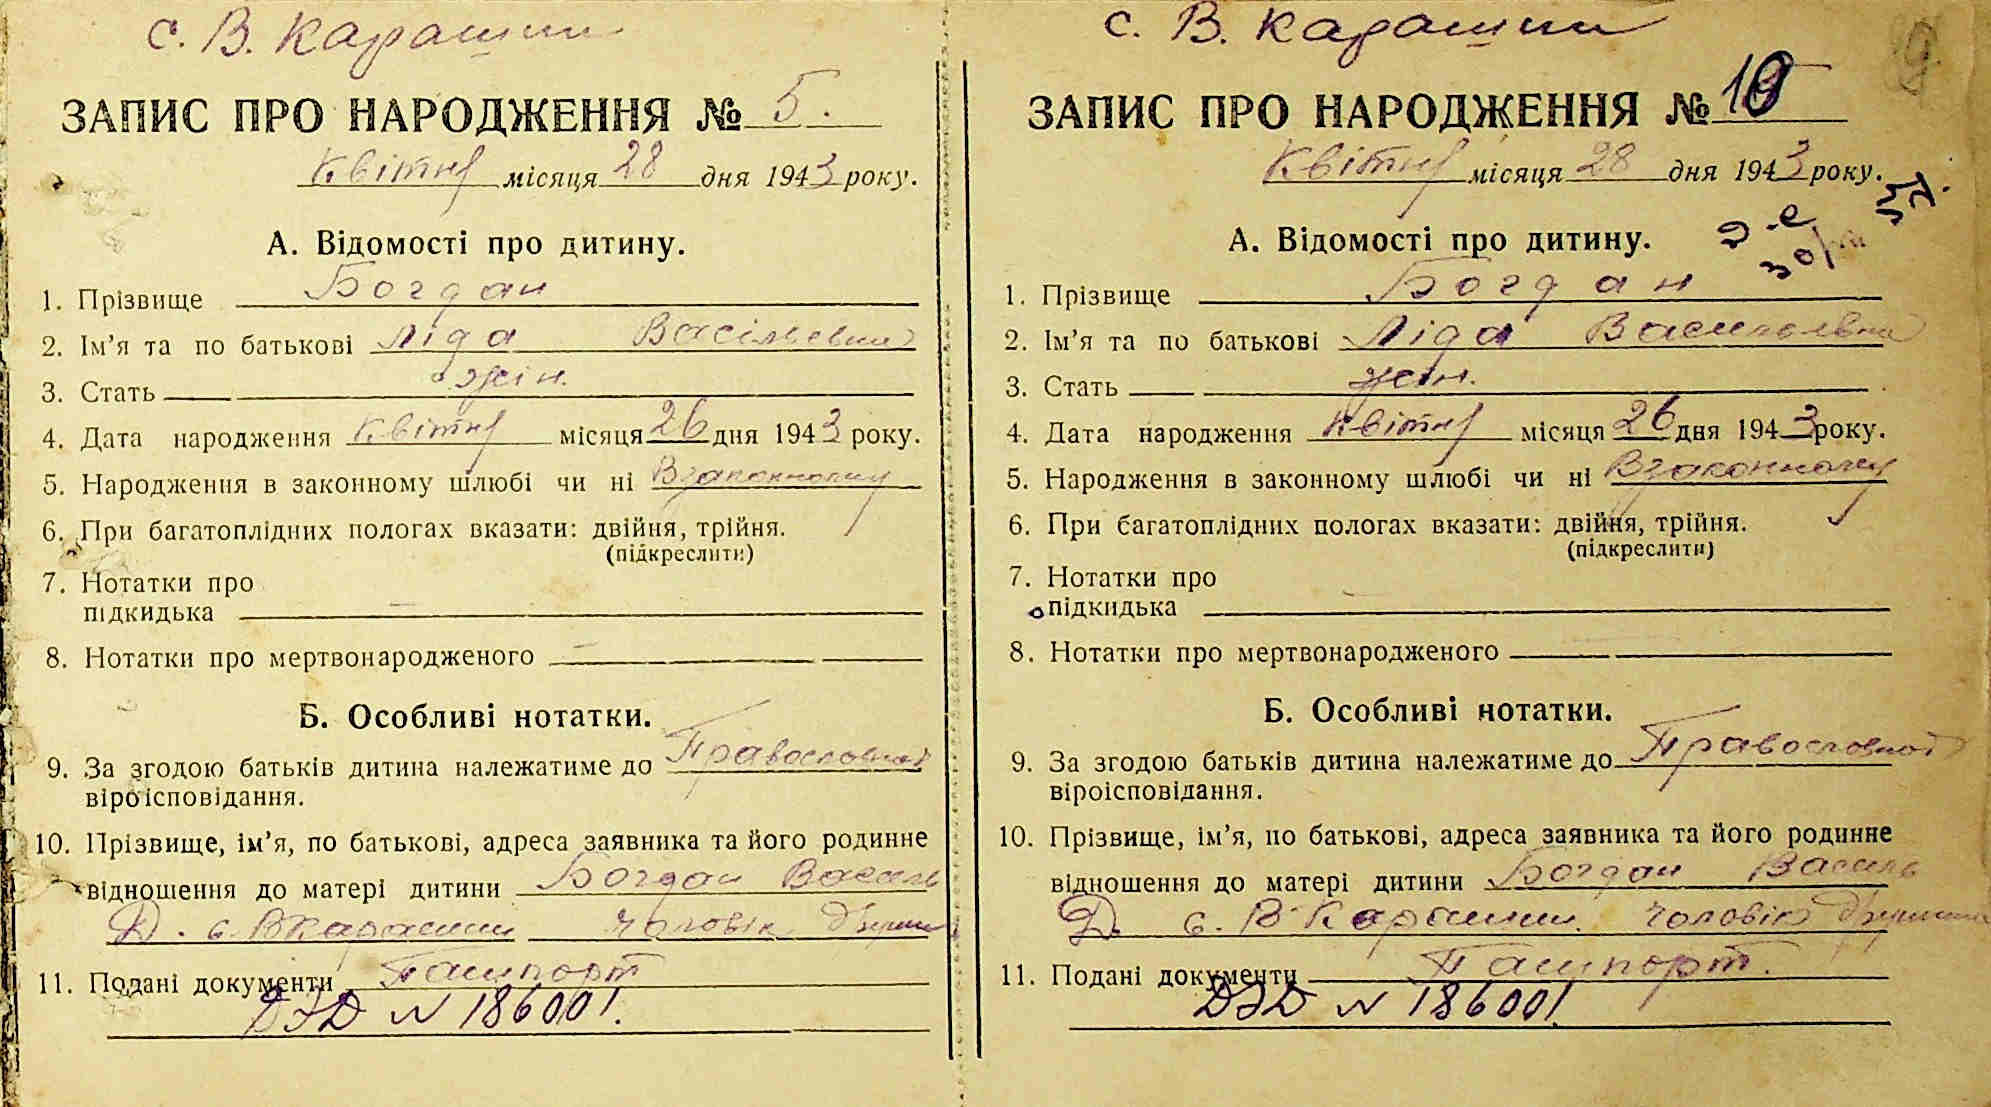 с. В. Карашин
ЗАПИС ПРО НАРОДЖЕННЯ № 5.
Квітня місяця 28 дня 1943 року.
А. Відомості про дитину.
1. Прізвище Богдан
2. Ім'я та по батькові Ліда Васільевна
3. Стать жін.
4. Дата народження Квітня місяця 26 дня 1943 року.
5. Народження в законному шлюбі чи ні Взаконному
6. При багатоплідних пологах вказати: двійня, трійня.
(підкреслити)
7. Нотатки про
підкидька
8. Нотатки про мертвонародженого
Б. Особливі нотатки.
9. За згодою батьків дитина належатиме до Православной
віроісповідання.
10. Прізвище, ім'я, по батькові, адреса заявника та його родинне
відношення до матері дитини Богдан Василь
Д. с. В Карашин чоловік
11. Подані документи Пашпорт
ДЭД N 186001.
с. В. Карашин
ЗАПИС ПРО НАРОДЖЕННЯ № 10
Квітня місяця 28 дня 1943 року.
А. Відомості про дитину.
1. Прізвище Богдан
2. Ім'я та по батькові Ліда Васильевна
3. Стать жін.
4. Дата народження Квітня місяця 26 дня 1943 року.
5. Народження в законному шлюбі чи ні Взаконному
6. При багатоплідних пологах вказати: двійня, трійня.
(підкреслити)
7. Нотатки про
підкидька
8. Нотатки про мертвонародженого
Б. Особливі нотатки.
9. За згодою батьків дитина належатиме до Православной
віроісповідання.
10. Прізвище, ім'я, по батькові, адреса заявника та його родинне
відношення до матері дитини Богдан Василь
Д. с. В. Карашин. чоловік
11. Подані документи Пашпорт.
ДЭД N 186001.